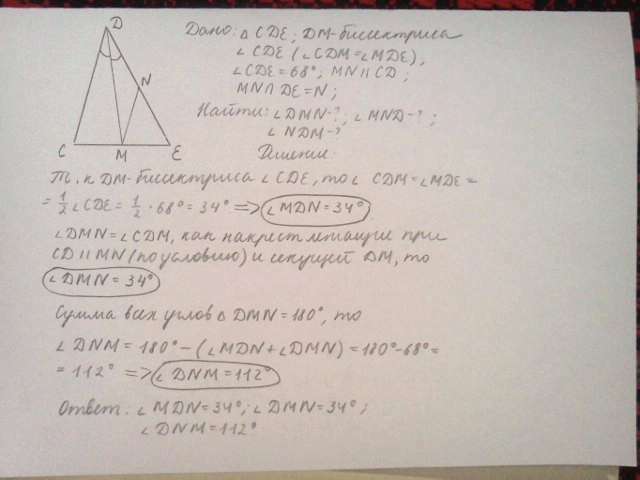 D
N
C M E
Дано: △ CDE; DM-биссектриса
∠ CDE (∠CDM=∠MDE),
∠CDE=68°; MN || CD;
MN∩ DE=N;
Найти: ∠DMN-?; ∠MND-?;
∠ NDM-?
Решение:
Т. к DM-биссектриса ∠ CDE, то ∠ CDM=∠MDE=
= 1/2 ∠CDE = 1/2 · 68° = 34° => ∠MDN=34°.
∠DMN=∠CDM, как накрест лежащие при
CD || MN (по условию) и секущей DM, то
∠DMN = 34°
Сумма всех углов △ DMN=180°, то
∠ DNM = 180° - (∠MDN+∠DMN) = 180°-68°=
= 112° => ∠DNM=112°
Ответ: ∠ MDN=34°; ∠ DMN=34°;
∠ DNM=112°